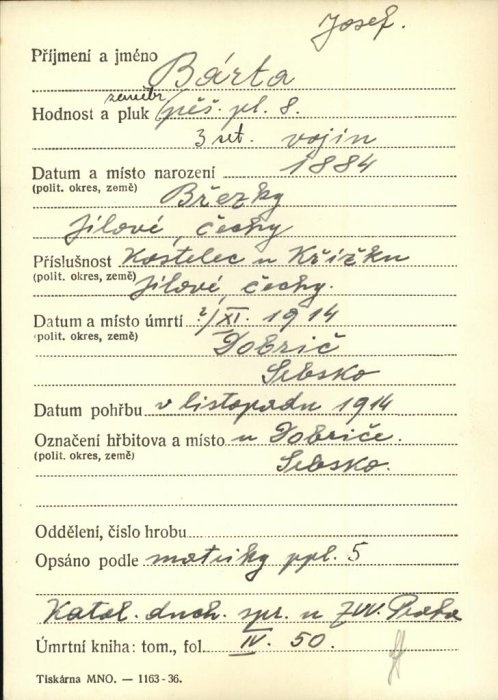 Josef.
Příjmení a jméno Bárta
zeměbr.
Hodnost a pluk pěš. pl. 8.
3 set. vojín
Datum a místo narození 1884
(polit. okres, země) Březky
Jílové, Čechy
Příslušnost Kostelec u Křížku
(polit. okres, země) Jílové, Čechy.
Datum a místo úmrtí ?/XI. 1914
(polit. okres, země) Dobrič
Srbsko
Datum pohřbu v listopadu 1914
Označení hřbitova a místo u Dobriče.
(polit. okres, země) Srbsko.
Oddělení, číslo hrobu
Opsáno podle matriky ppl. 5
Katol. duch. spr. u ZVV. Praha
Úmrtní kniha: tom., fol. IV. 50.
Tiskárna MNO. — 1163-36.